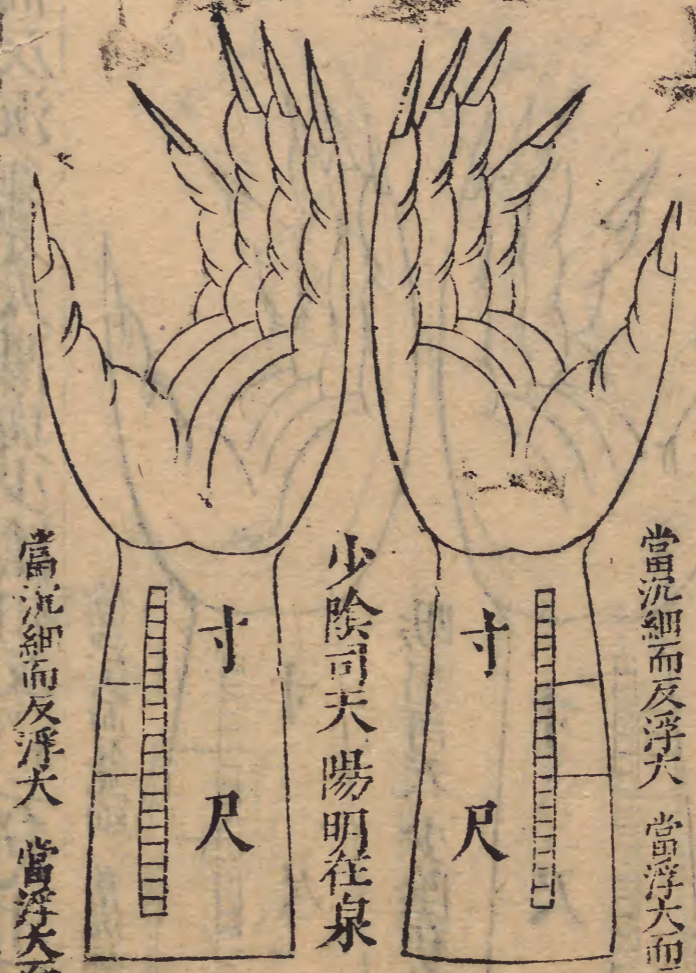 當沉細而反浮大 當浮大而
寸
尺
少陰司天 陽明在泉
寸
尺
當沉細而反浮大 當浮大而